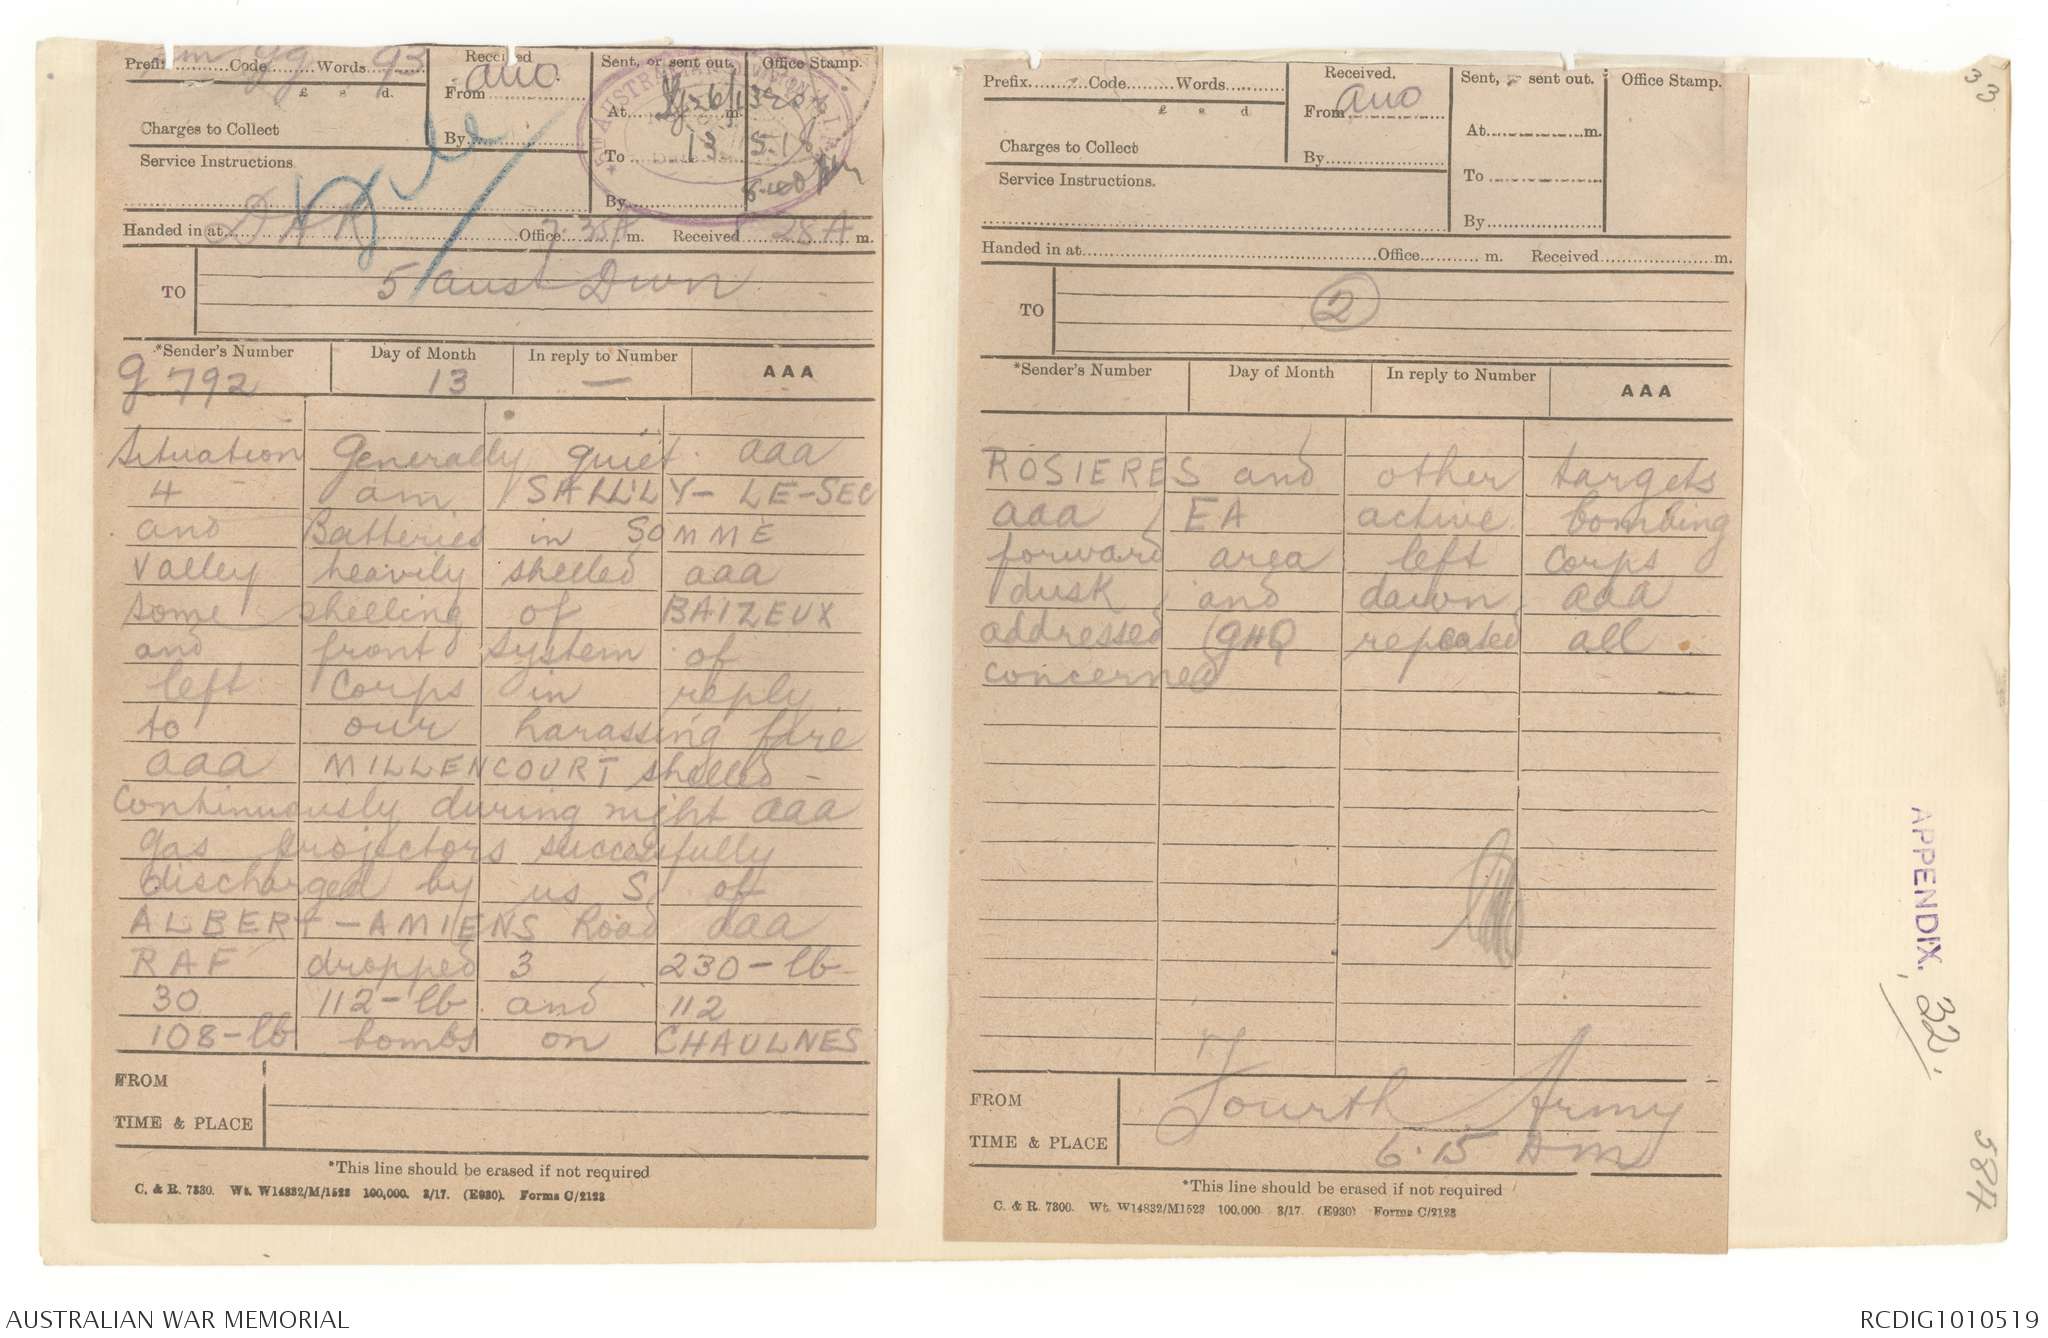 Prefix sm Code yg Words 93
£ s. d.
Charges to Collect
Service Instructions
DAR
Received
From AUO
By
Sent, or sent out.
At m.
To
By
Office Stamp.
AUSTRALIAN DIVISION
13 5.18
Handed in at Office 7.35 A m. Received 28 A m.
TO 5 Aust Divn
*Sender's Number Day of Month In reply to Number AAA
g 792 13 —
Situation Generally quiet aaa
4 am SAILLY-LE-SEC
and Batteries in SOMME
Valley heavily shelled aaa
Some shelling of BAIZEUX
and front system of
left Corps in reply
to our harassing fire
aaa MILLENCOURT shelled -
continuously during night aaa
gas projectors successfully
discharged by us S of
ALBERT-AMIENS Road aaa
RAF dropped 3 230-lb
30 112-lb and 112
108-lb bombs on CHAULNES
FROM
TIME & PLACE
*This line should be erased if not required
C. & R. 7330. Wt. W14832/M/1523 100,000. 3/17. (E930). Forms C/2123
Prefix Code Words
£ s d
Charges to Collect
Service Instructions.
Received.
From AUO
By
Sent, or sent out.
At m.
To
By
Office Stamp.
Handed in at Office m. Received m.
TO 2
*Sender's Number Day of Month In reply to Number AAA
ROSIERES and other targets
aaa EA active bombing
forward area left corps
dusk and dawn aaa
addressed GHQ repeated all
concerned
FROM Fourth Army
TIME & PLACE 6.15 am
*This line should be erased if not required
C. & R. 7300. Wt. W14832/M1523 100,000 3/17. (E930) Forms C/2123
33
APPENDIX. 32.
584
AUSTRALIAN WAR MEMORIAL
RCDIG1010519